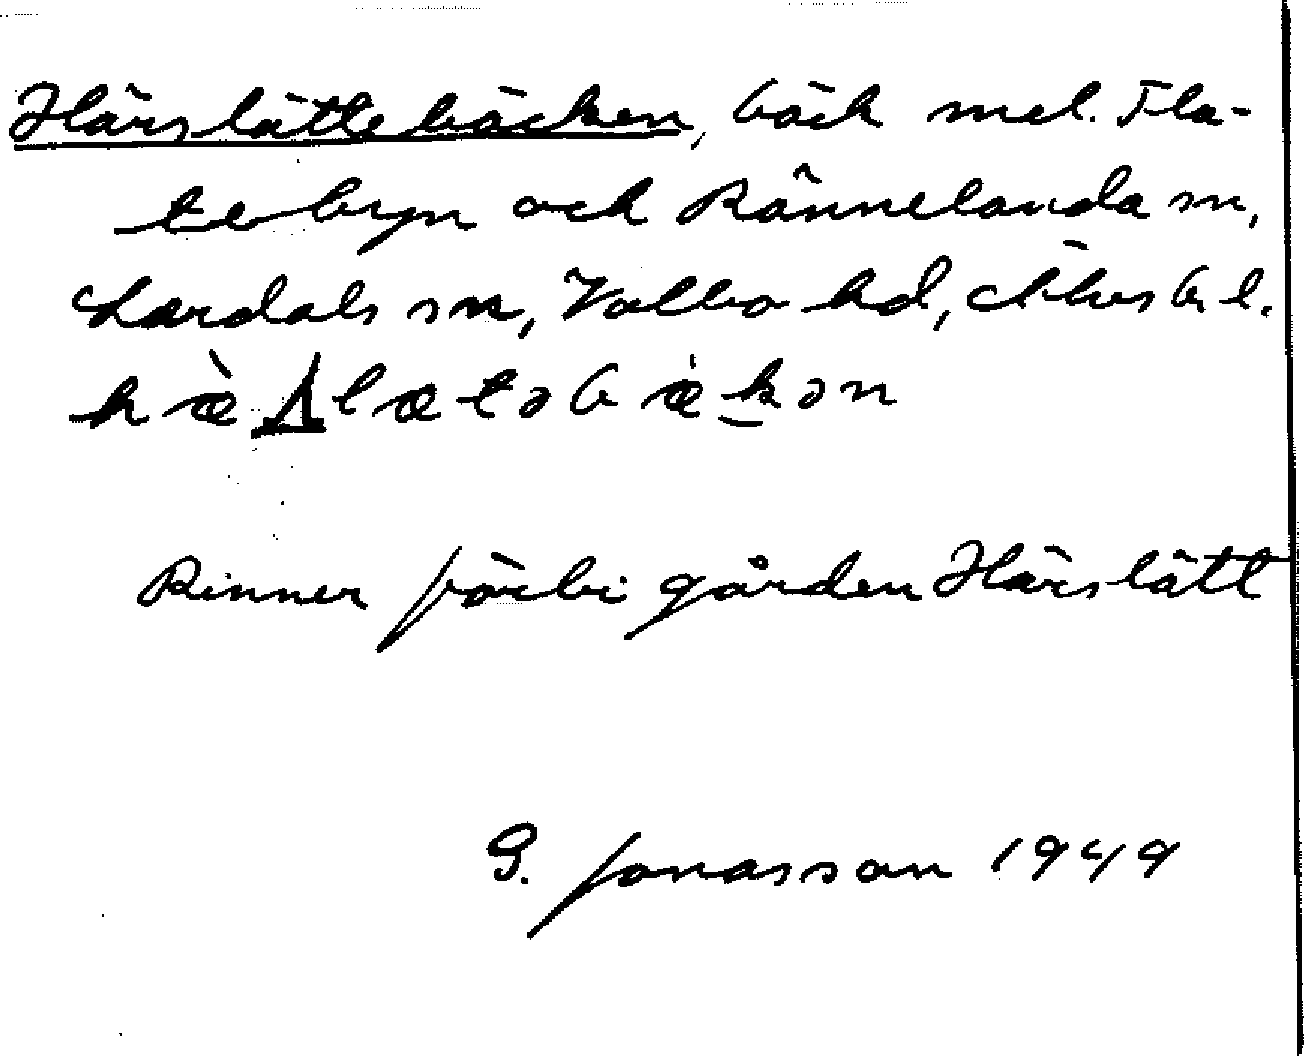 Härslättebäcken, bäck mel. Fla-
tebyn och Rännelanda sn,
Lerdals sn, Valbo hd, Älvsb l.
Rinner förbi gården Härslätt
G. Jonasson 1949